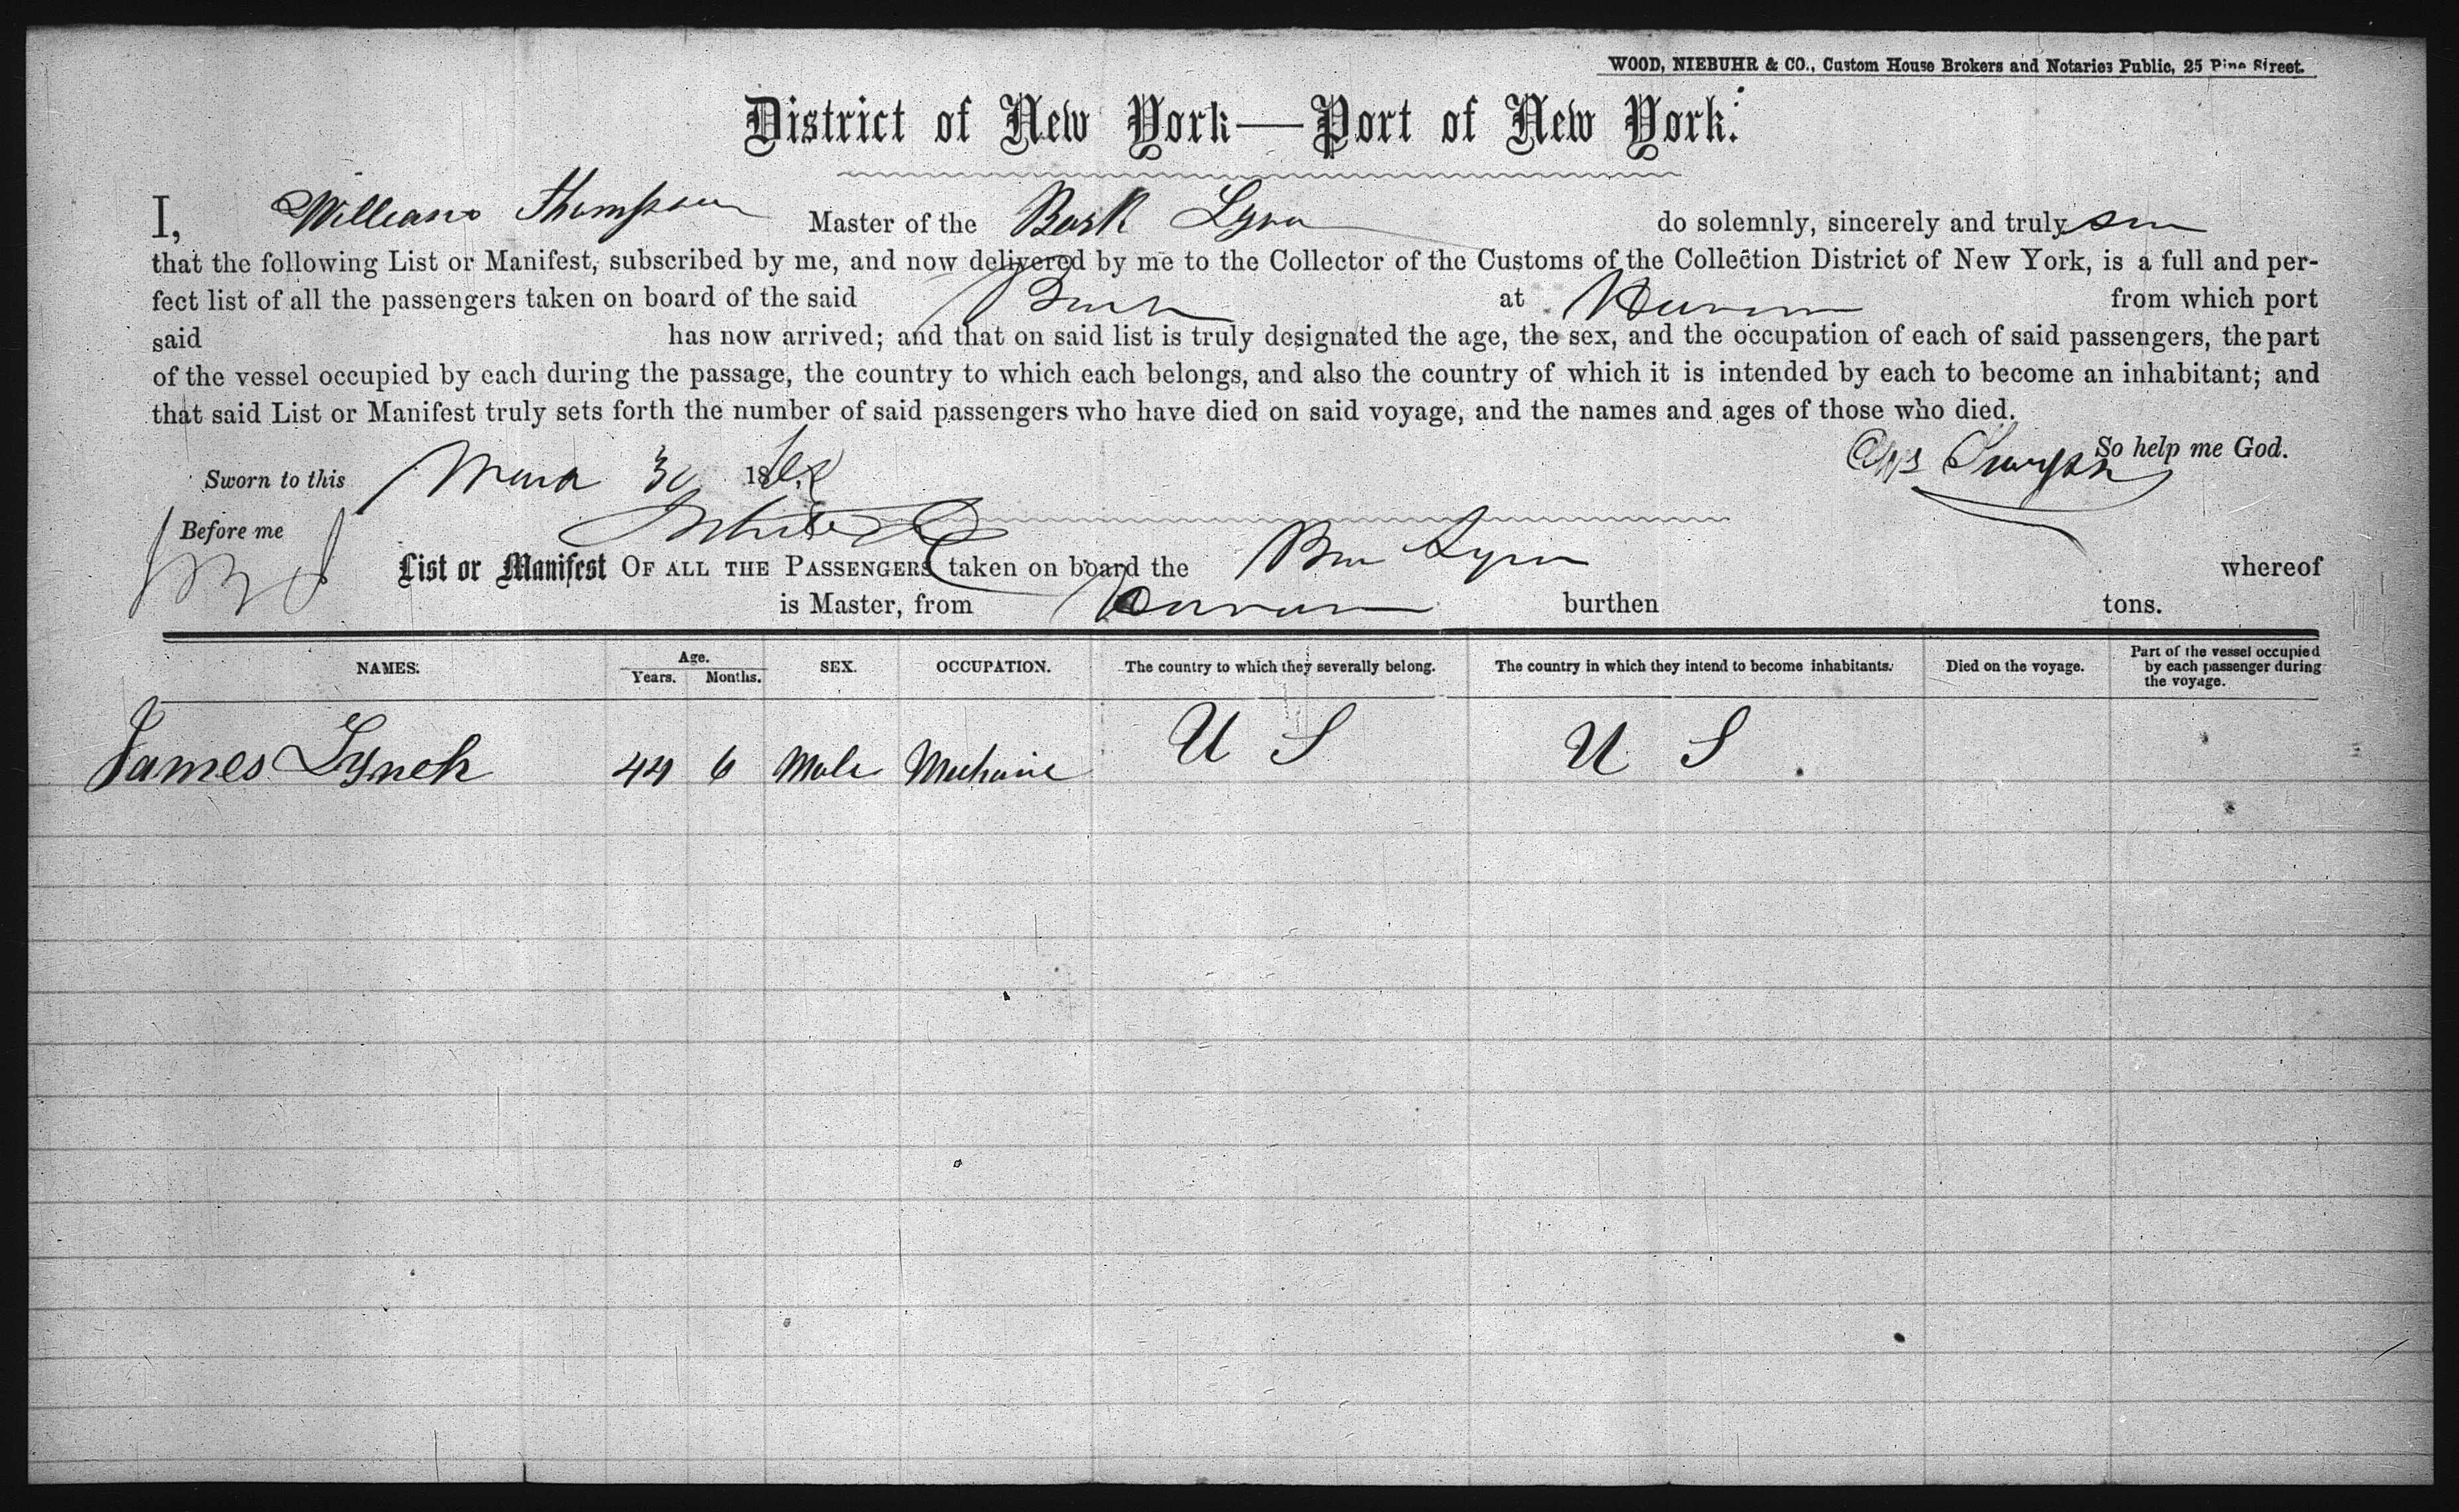 WOOD, NIEBUHR & CO., Custom House Brokers and Notaries Public, 25 Pine Street.
District of New York—Port of New York.
I, William Thompson Master of the Bark Lyra do solemnly, sincerely and truly
that the following List or Manifest, subscribed by me, and now delivered by me to the Collector of the Customs of the Collection District of New York, is a full and per-
fect list of all the passengers taken on board of the said Bark at Havana from which port
said has now arrived; and that on said list is truly designated the age, the sex, and the occupation of each of said passengers, the part
of the vessel occupied by each during the passage, the country to which each belongs, and also the country of which it is intended by each to become an inhabitant; and
that said List or Manifest truly sets forth the number of said passengers who have died on said voyage, and the names and ages of those who died.
So help me God.
Sworn to this 18
Before me
List or Manifest OF ALL THE PASSENGERS taken on board the Lyra whereof
is Master, from Havana burthen tons.
NAMES. Age. Years. Months. SEX. OCCUPATION. The country to which they severally belong. The country in which they intend to become inhabitants. Died on the voyage. Part of the vessel occupied by each passenger during the voyage.
James Lynch 44 6 Male Mechanic U S U S